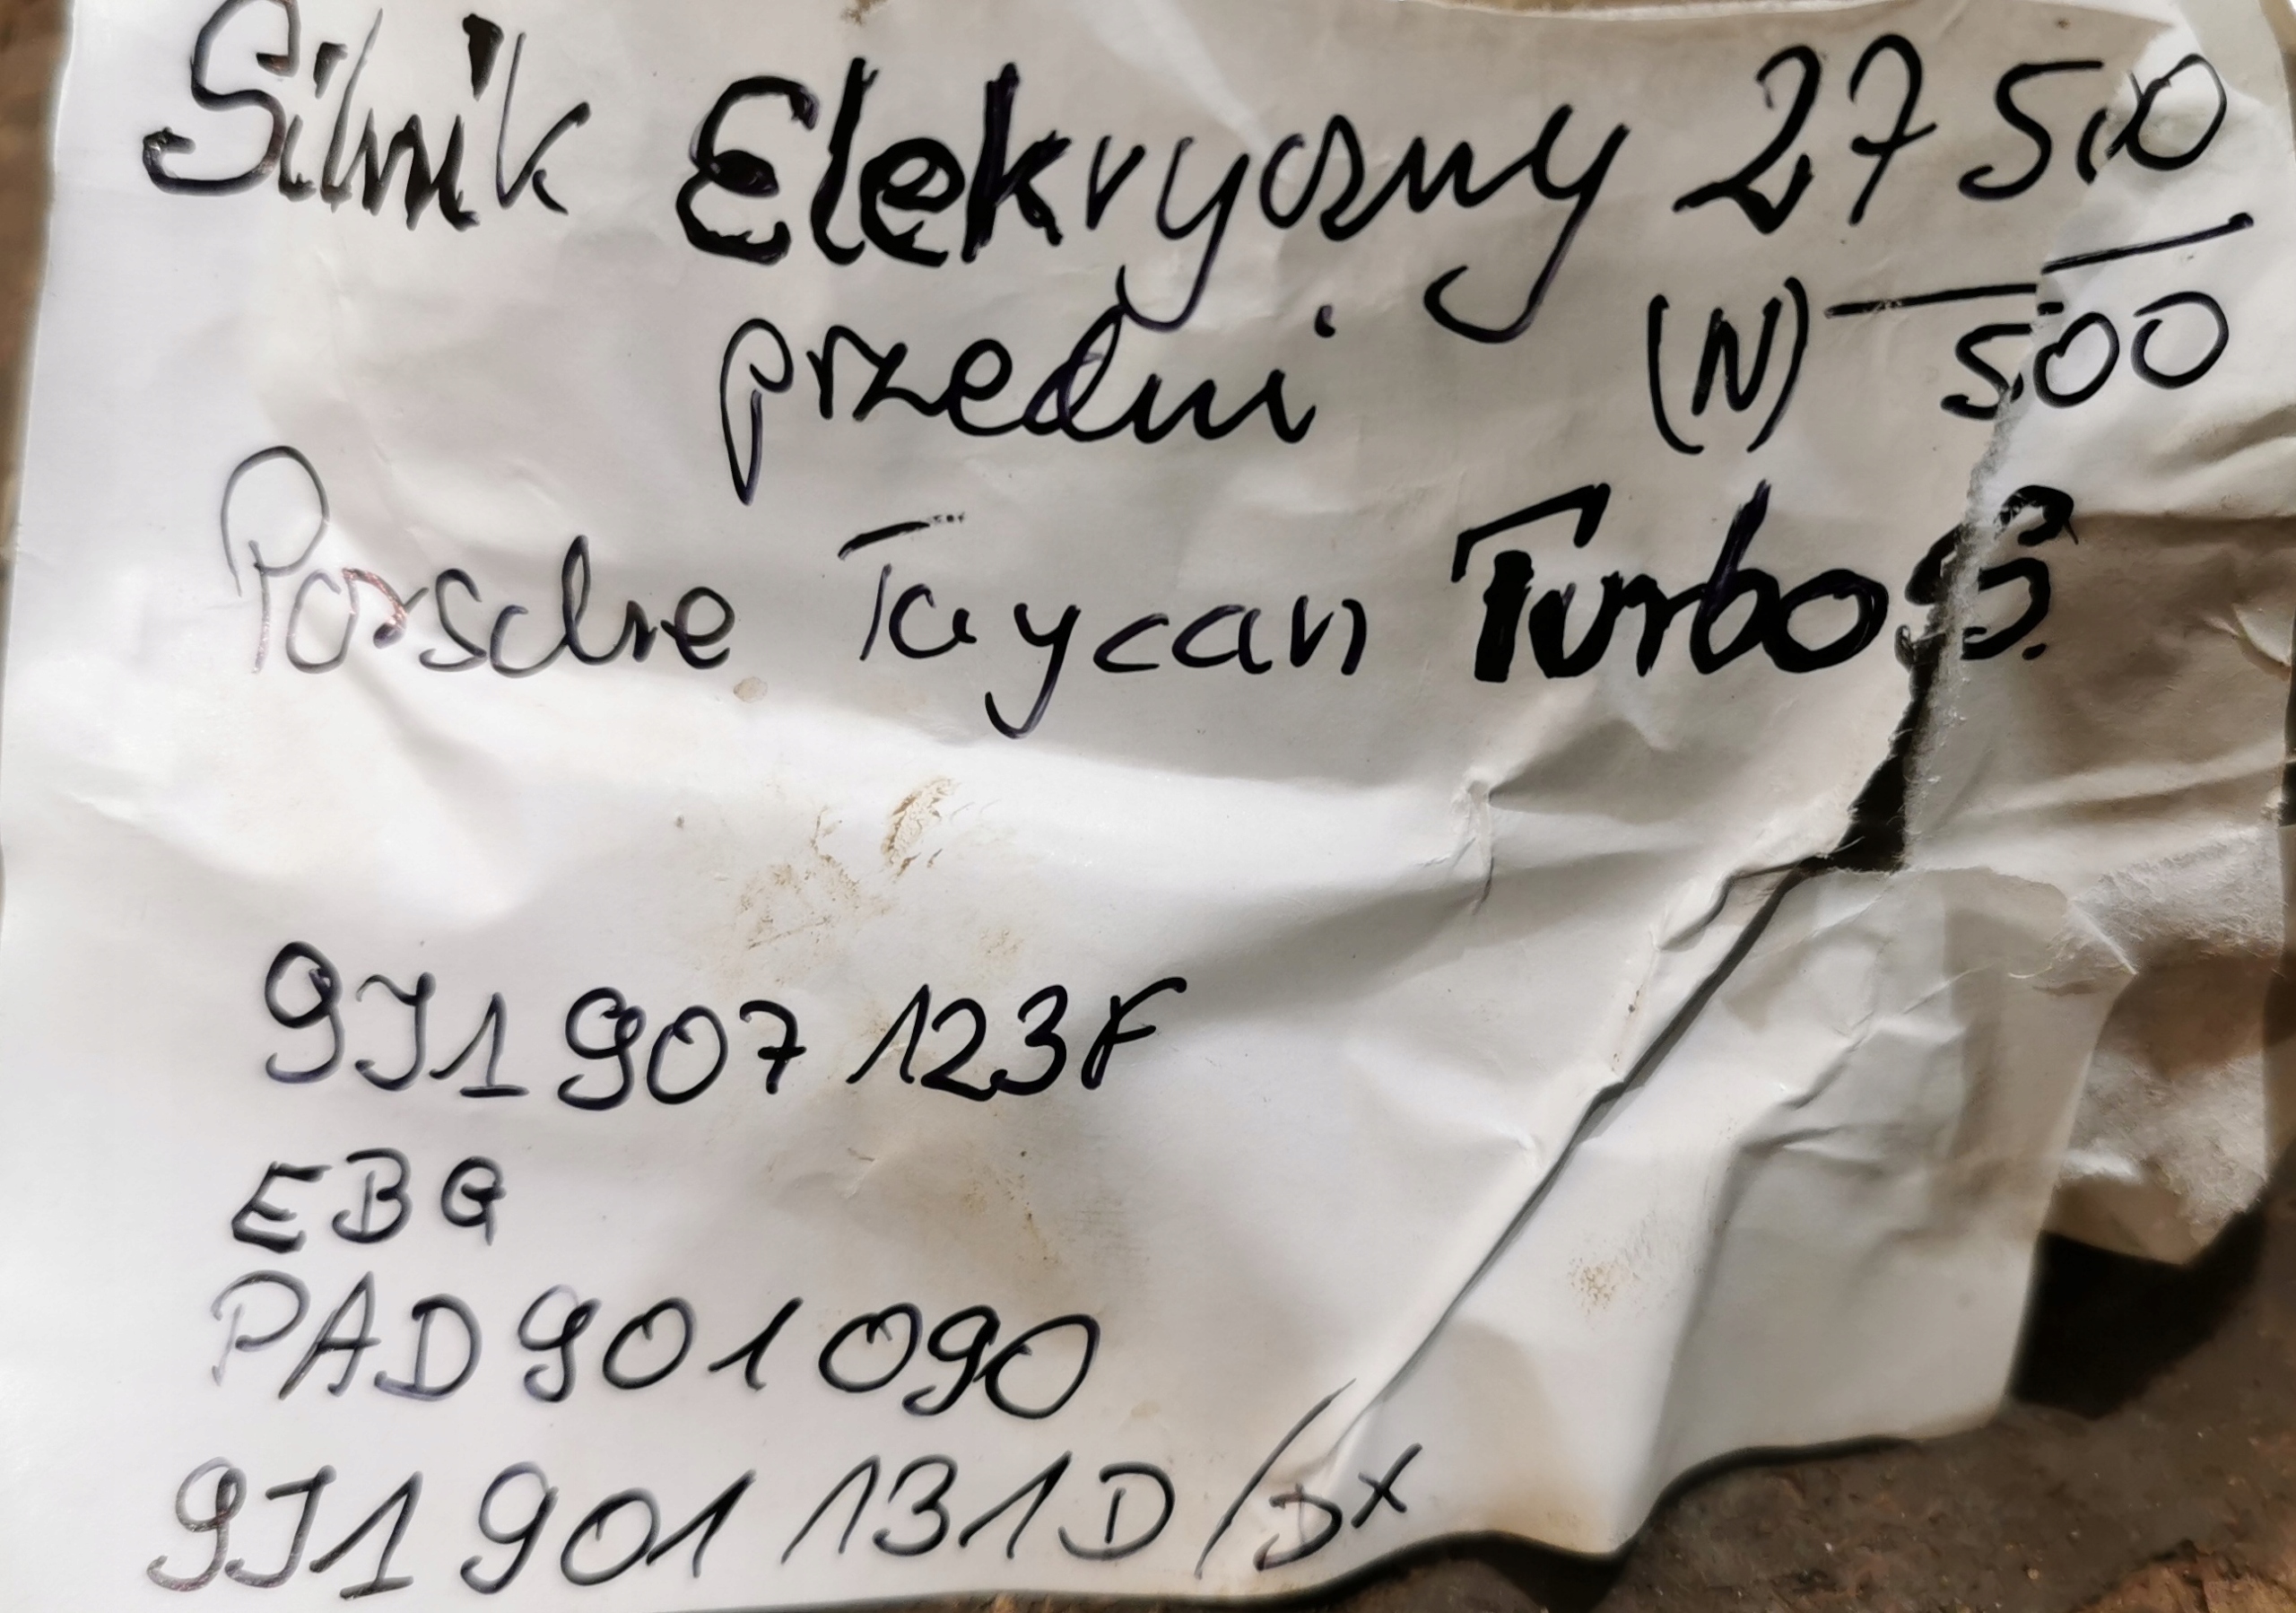 Silnik Elekryczny 27 500
przedni (N) 500
Porsche Taycan Turbo S.
9J1 907 123F
EBG
PAD 901 090
9J1 901 131 D/DX